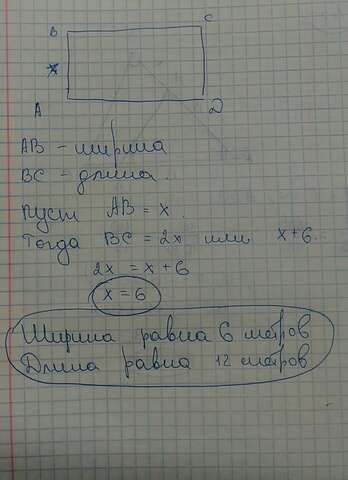 B C
x
A D
AB - ширина
BC - длина
Пусть AB = x
Тогда BC = 2x или x+6.
2x = x + 6
x = 6
Ширина равна 6 метров
Длина равна 12 метров